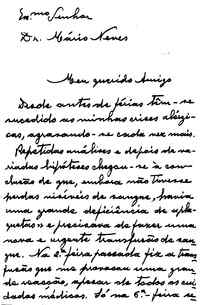 Ex.mo Senhor
Dr. Mário Neves
Meu querido Amigo
Desde antes de férias têm-se
sucedido as minhas crises alérgi-
cas, agravando-se cada vez mais.
Repetidas análises e depois de va-
riadas hipóteses chegou-se à con-
clusão de que, embora não tivesse
perdas visíveis de sangue, havia
uma grande deficiência de
e precisava de fazer uma
nova e urgente transfusão de san-
gue. Na 2.ª feira passada fiz a trans-
fusão que me provocou uma gran-
de reacção, apesar de todos os cui-
dados médicos. Só na 6.ª feira se